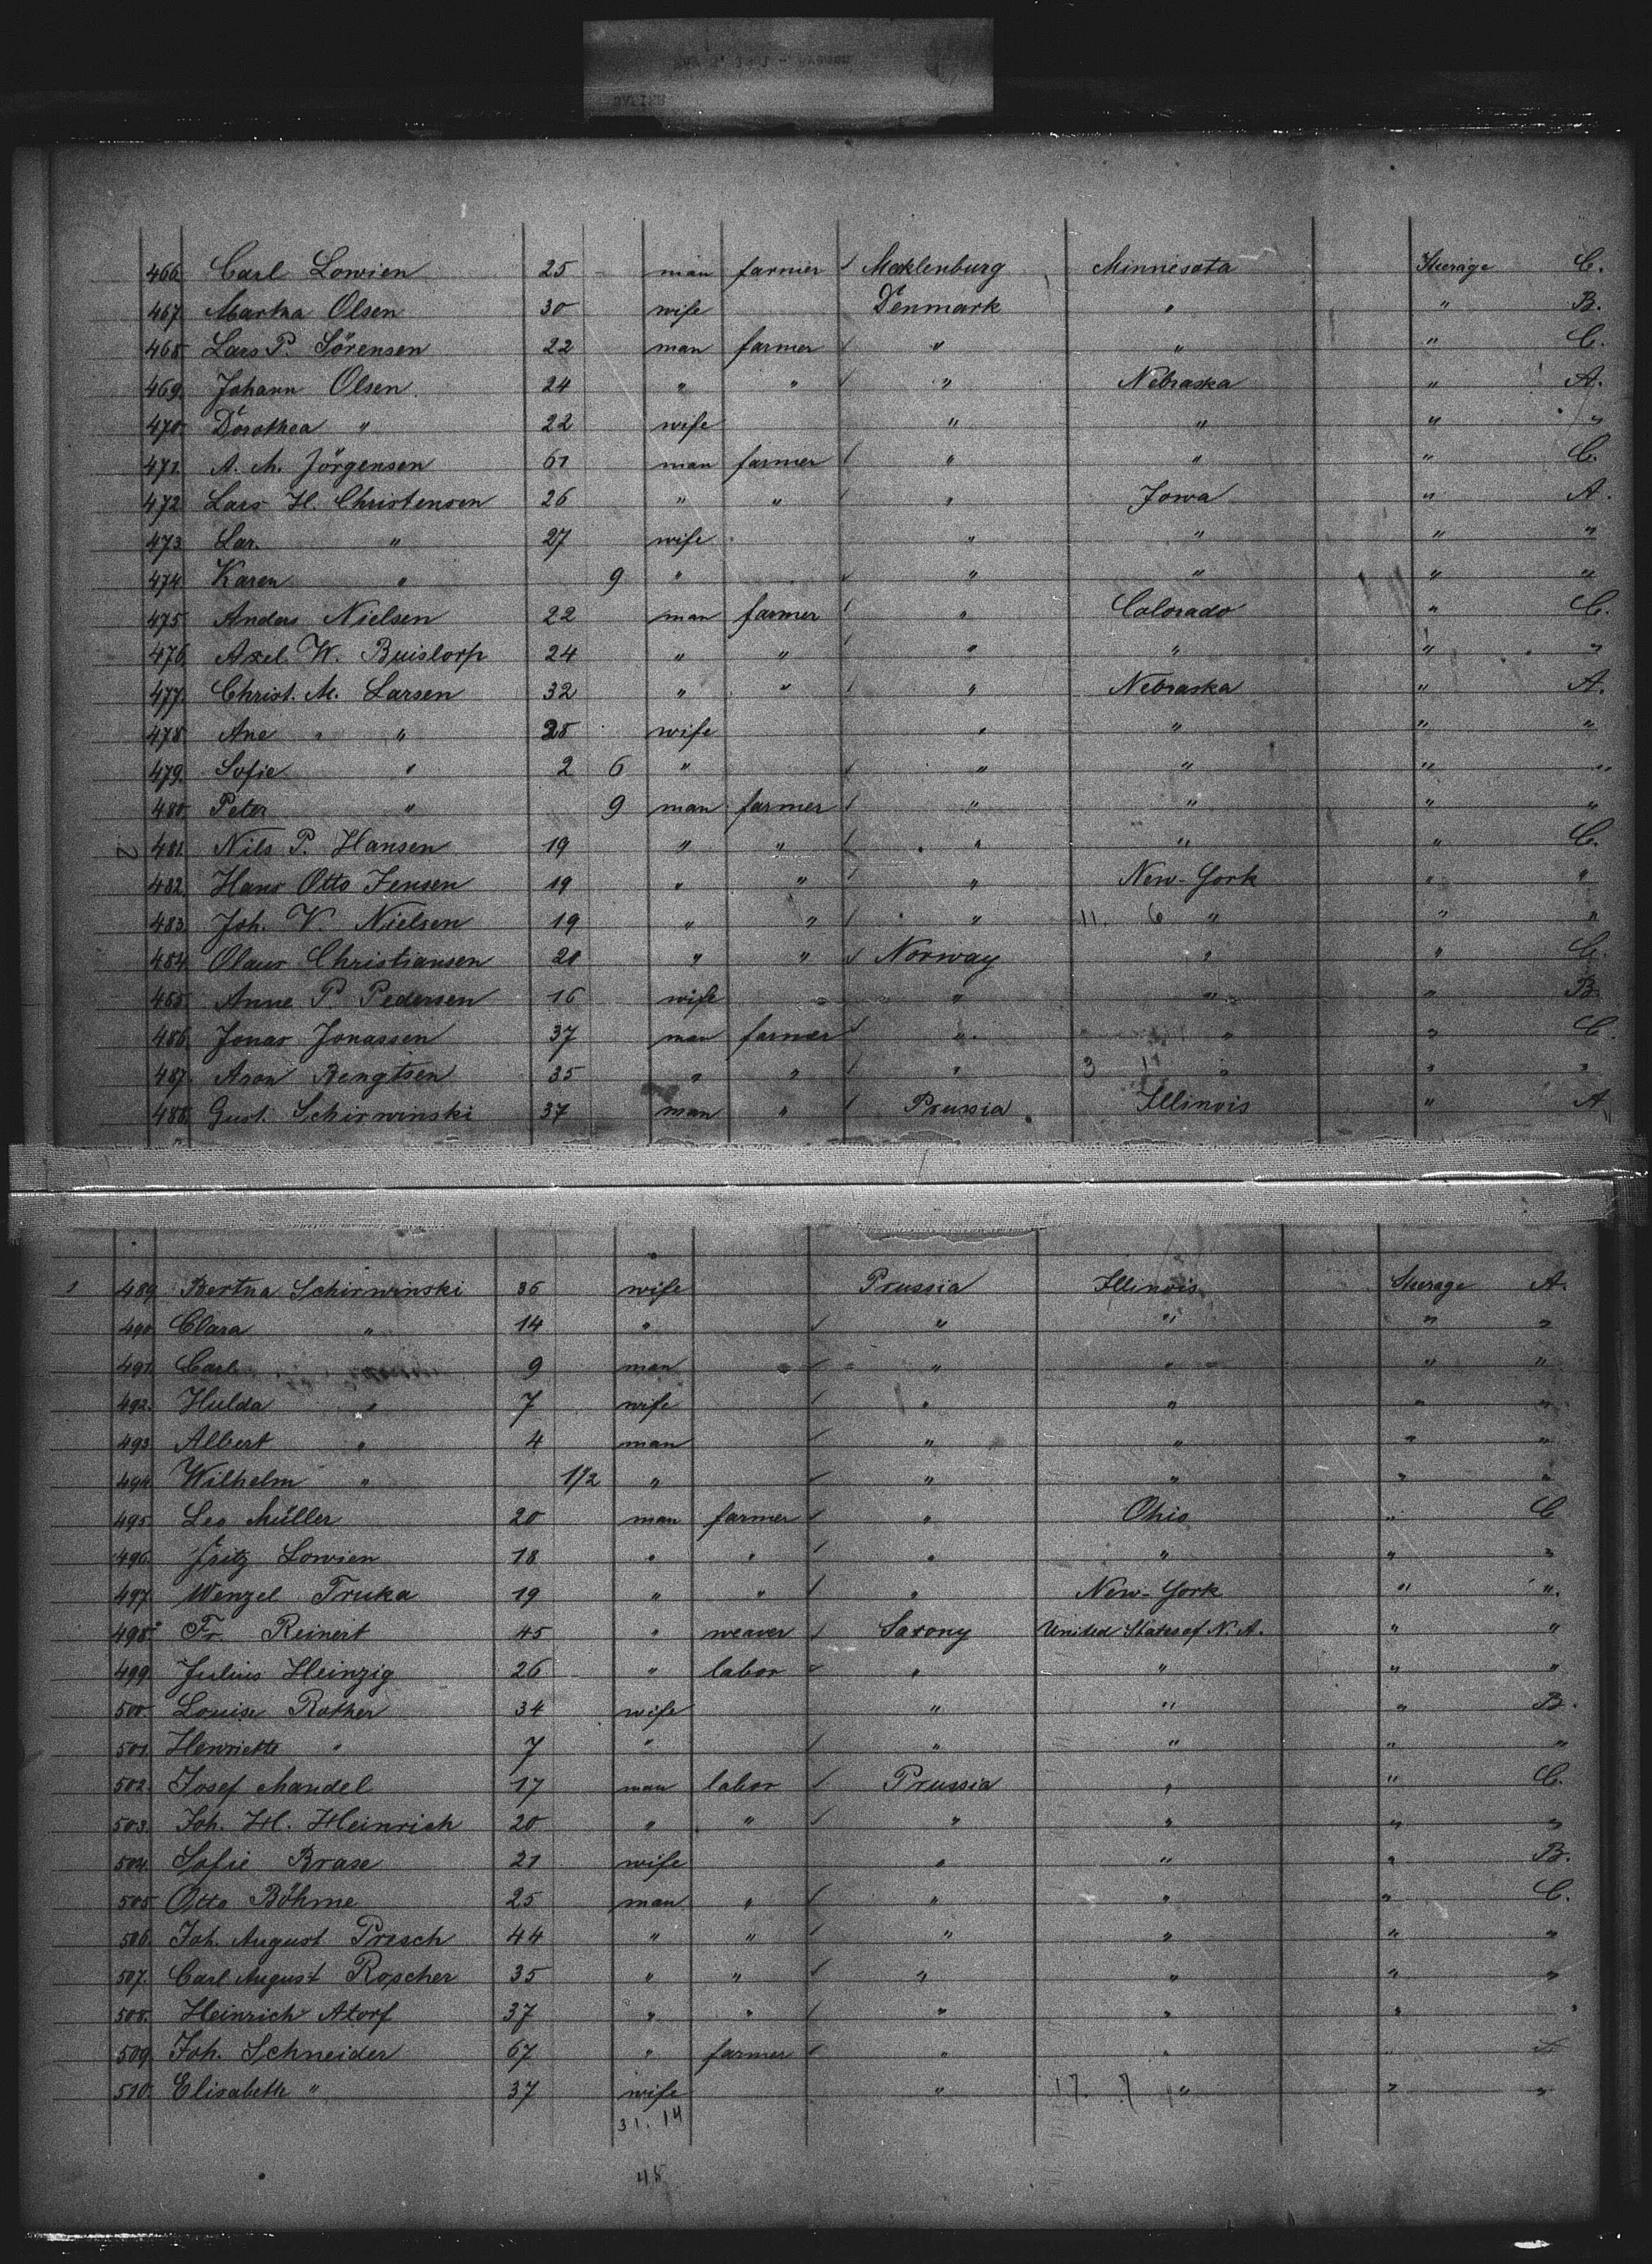 466. Carl Lowien 25 man farmer Mecklenburg Minnesota Steerage C.
467. Martha Olsen 30 wife Denmark " " B.
468. Lars P. Sörensen 22 man farmer " " " C.
469. Johann Olsen 24 " " " Nebraska " A.
470. Dorothea " 22 wife " " " "
471. A. M. Jörgensen 61 man farmer " " " C.
472. Lars H. Christensen 26 " " " Iowa " A.
473. Lar. " 27 wife " " " "
474. Karen " 9 " " " " "
475. Anders Nielsen 22 man farmer " Colorado " C.
476. Axel W. Buistorp 24 " " " " " "
477. Christ. M. Larsen 32 " " " Nebraska " A.
478. Ane " " 28 wife " " " "
479. Sofie " 2 6 " " " " "
480. Peter " 9 man farmer " " " "
481. Nils P. Hansen 19 " " " " " C.
482. Hans Otto Jensen 19 " " " New-York " "
483. Joh. V. Nielsen 19 " " " 11. 6 " " "
484. Olaus Christiansen 20 " " Norway " " C.
485. Anne P. Pedersen 16 wife " " " B.
486. Jonas Jonassen 37 man farmer " " " C.
487. Aron Bengtsen 35 " " " 3 1 " " "
488. Gust. Schirwinski 37 man " Prussia Illinois " A.
489. Bertha Schirwinski 36 wife Prussia Illinois Steerage A.
490. Clara " 14 " " " " "
491. Carl 9 man " " " "
492. Hulda " 7 wife " " " "
493. Albert " 4 man " " " "
494. Wilhelm " 1/2 " " " " "
495. Leo Müller 20 man farmer " Ohio " C
496. Fritz Lowien 18 " " " " " "
497. Wenzel Truka 19 " " " New-York " "
498. Fr. Reinert 45 " weaver Saxony United States of N. A. " "
499. Julius Heinzig 26 " labor " " " "
500. Louise Rother 34 wife " " " B.
501. Henriette " 7 " " " " "
502. Josef Mandel 17 man labor Prussia " " C.
503. Joh. H. Heinrich 20 " " " " " "
504. Sofie Brase 21 wife " " " B.
505. Otto Böhme 25 man " " " " C.
506. Joh. August Presch 44 " " " " " "
507. Carl August Roscher 35 " " " " " "
508. Heinrich Atorf 37 " " " " " "
509. Joh. Schneider 67 " farmer " " " A
510. Elisabeth " 37 wife " 17. 7 " " "
31. 14
48